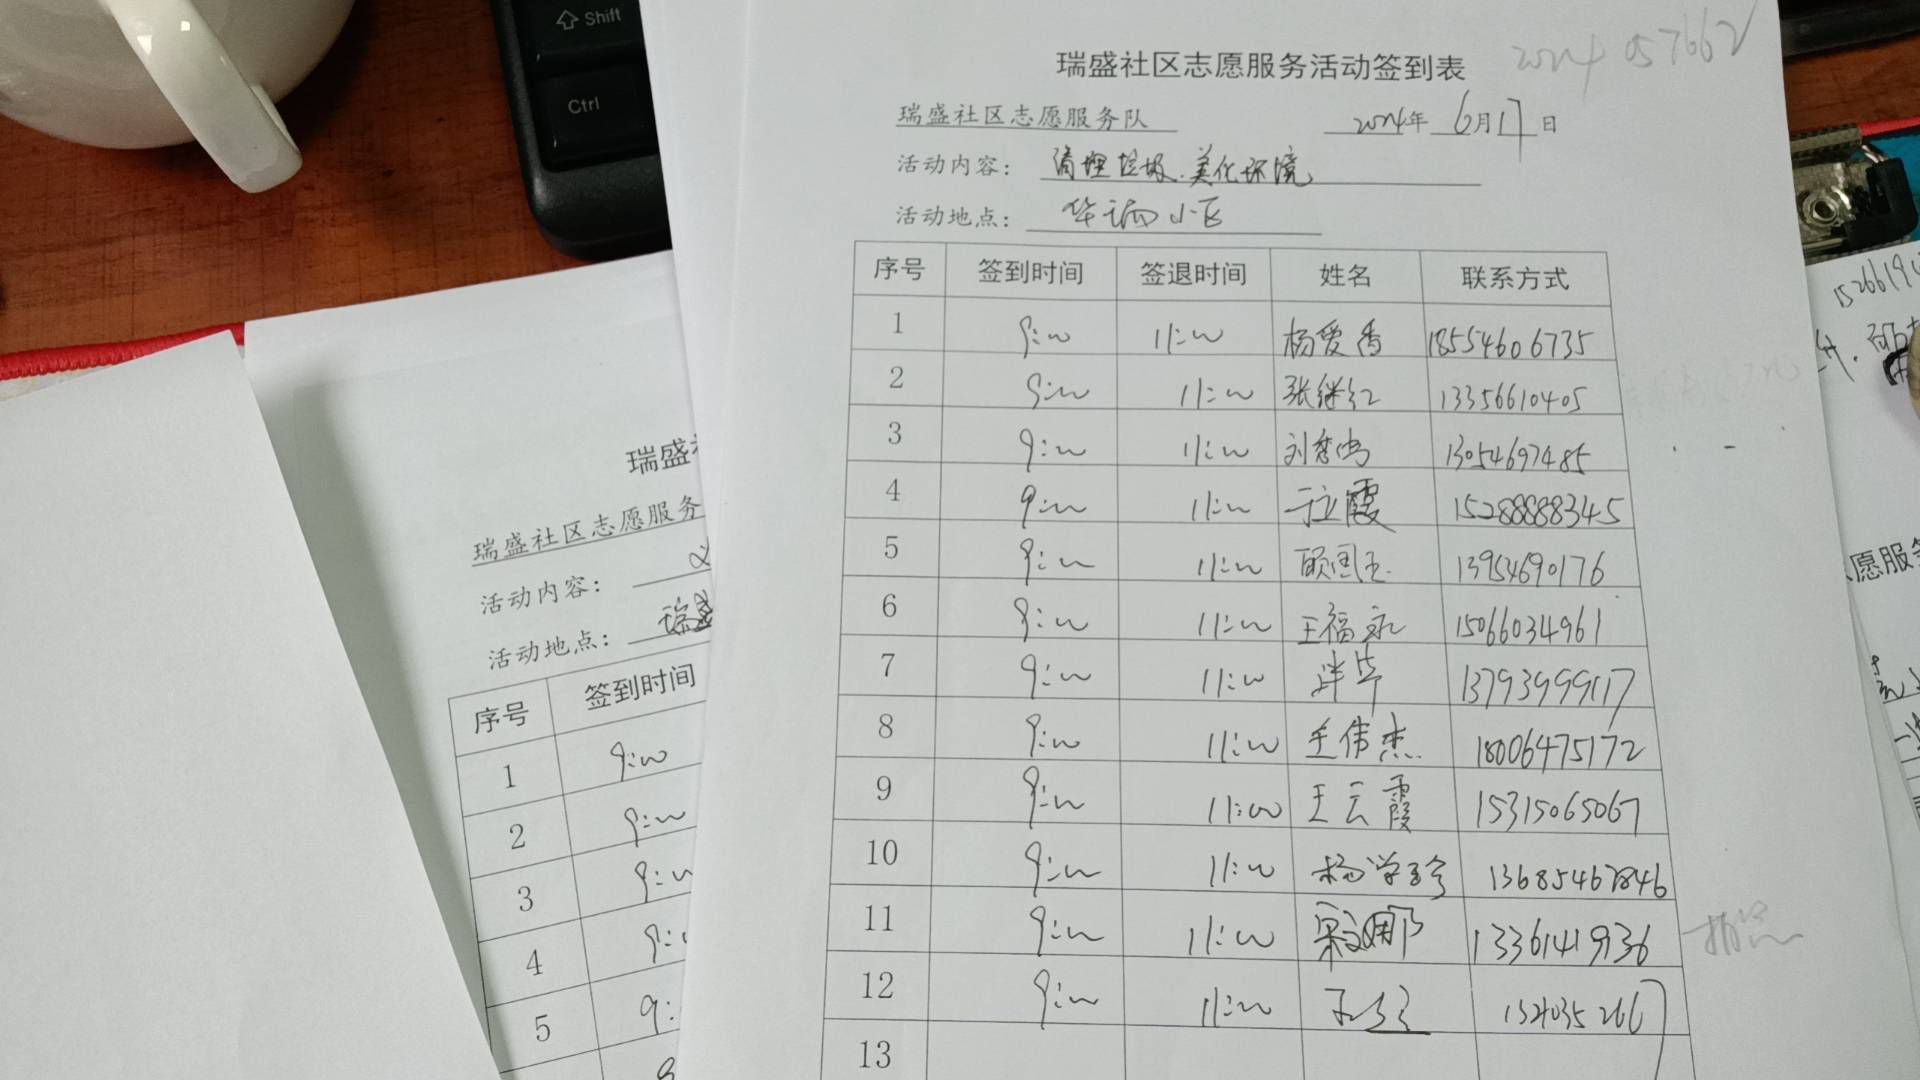 Shift
Ctrl
瑞盛社区志愿服务活动签到表
瑞盛社区志愿服务队 2024年 6月17日
活动内容： 清理垃圾、美化环境
活动地点： 小区
序号 签到时间 签退时间 姓名 联系方式
1 9:00 11:00 杨爱香 18554606735
2 9:00 11:00 张继红 13356610405
3 9:00 11:00 刘 13054697485
4 9:00 11:00 于立霞 15288888345
5 9:00 11:00 顾国玉 13954690176
6 9:00 11:00 王福永 15066034961
7 9:00 11:00 13793999117
8 9:00 11:00 王伟杰 18006475172
9 9:00 11:00 王云霞 15315065067
10 9:00 11:00 杨学珍 13685467846
11 9:00 11:00 13361419136
12 9:00 11:00
13
瑞盛
瑞盛社区志愿服务
活动内容：
活动地点： 瑞盛
序号 签到时间
1 9:00
2 9:00
3 9:00
4 9:
5 9:
愿服务